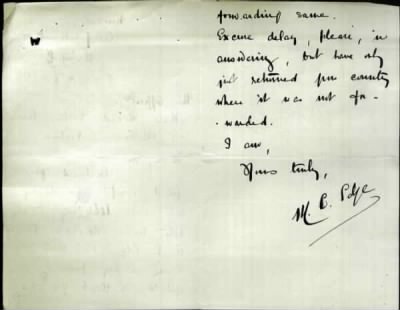 forwarding same.
Excuse delay, please, in
answering, but have only
just returned from country
where it was not for-
-warded.
I am,
Yours truly,
M. B.